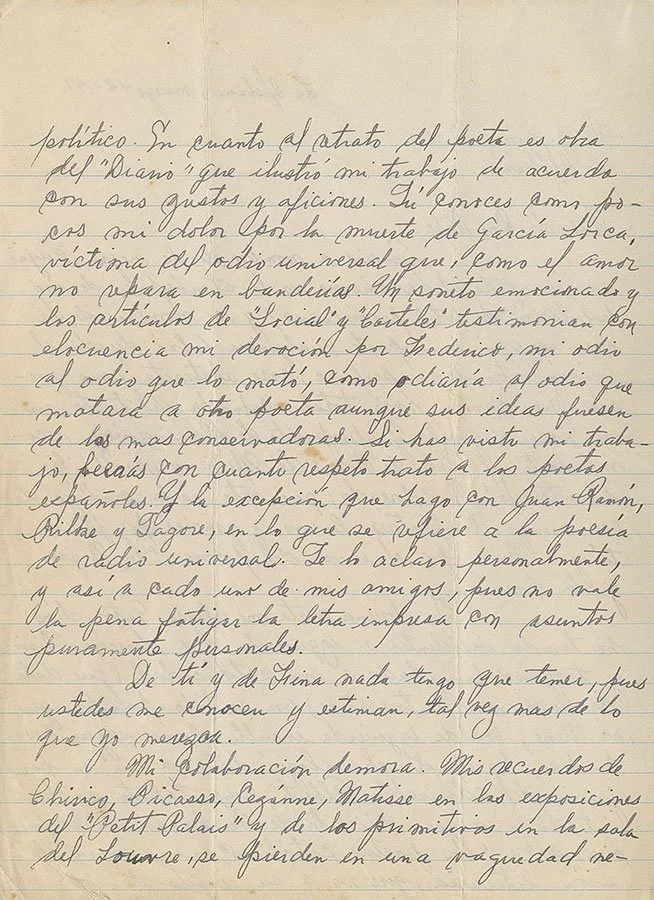 político. En cuanto al retrato del poeta es obra
del "Diario" que ilustró mi trabajo de acuerdo
con sus gustos y aficiones. Tú conoces como po-
cos mi dolor por la muerte de García Lorca,
víctima del odio universal que, como el amor
no repara en banderías. Un soneto emocionado y
los artículos de "Social" y "Carteles" testimonian con
elocuencia mi devoción por Federico, mi odio
al odio que lo mató, como odiaría al odio que
matara a otro poeta aunque sus ideas fuesen
de las mas conservadoras. Si has visto mi traba-
jo, verás con cuanto respeto trato a los poetas
españoles. Y la excepción que hago con Juan Ramón,
Rilke y Tagore, en lo que se refiere a la poesía
de radio universal. Te lo aclaro personalmente,
y así a cada uno de mis amigos, pues no vale
la pena fatigar la letra impresa con asuntos
puramente personales.
De tí y de Fina nada tengo que temer, pues
ustedes me conocen y estiman, tal vez mas de lo
que yo merezca.
Mi colaboración demora. Mis recuerdos de
Chirico, Picasso, Cezánne, Matisse en las exposiciones
del "Petit Palais" y de los primitivos en la sala
del Louvre, se pierden en una vaguedad ne-